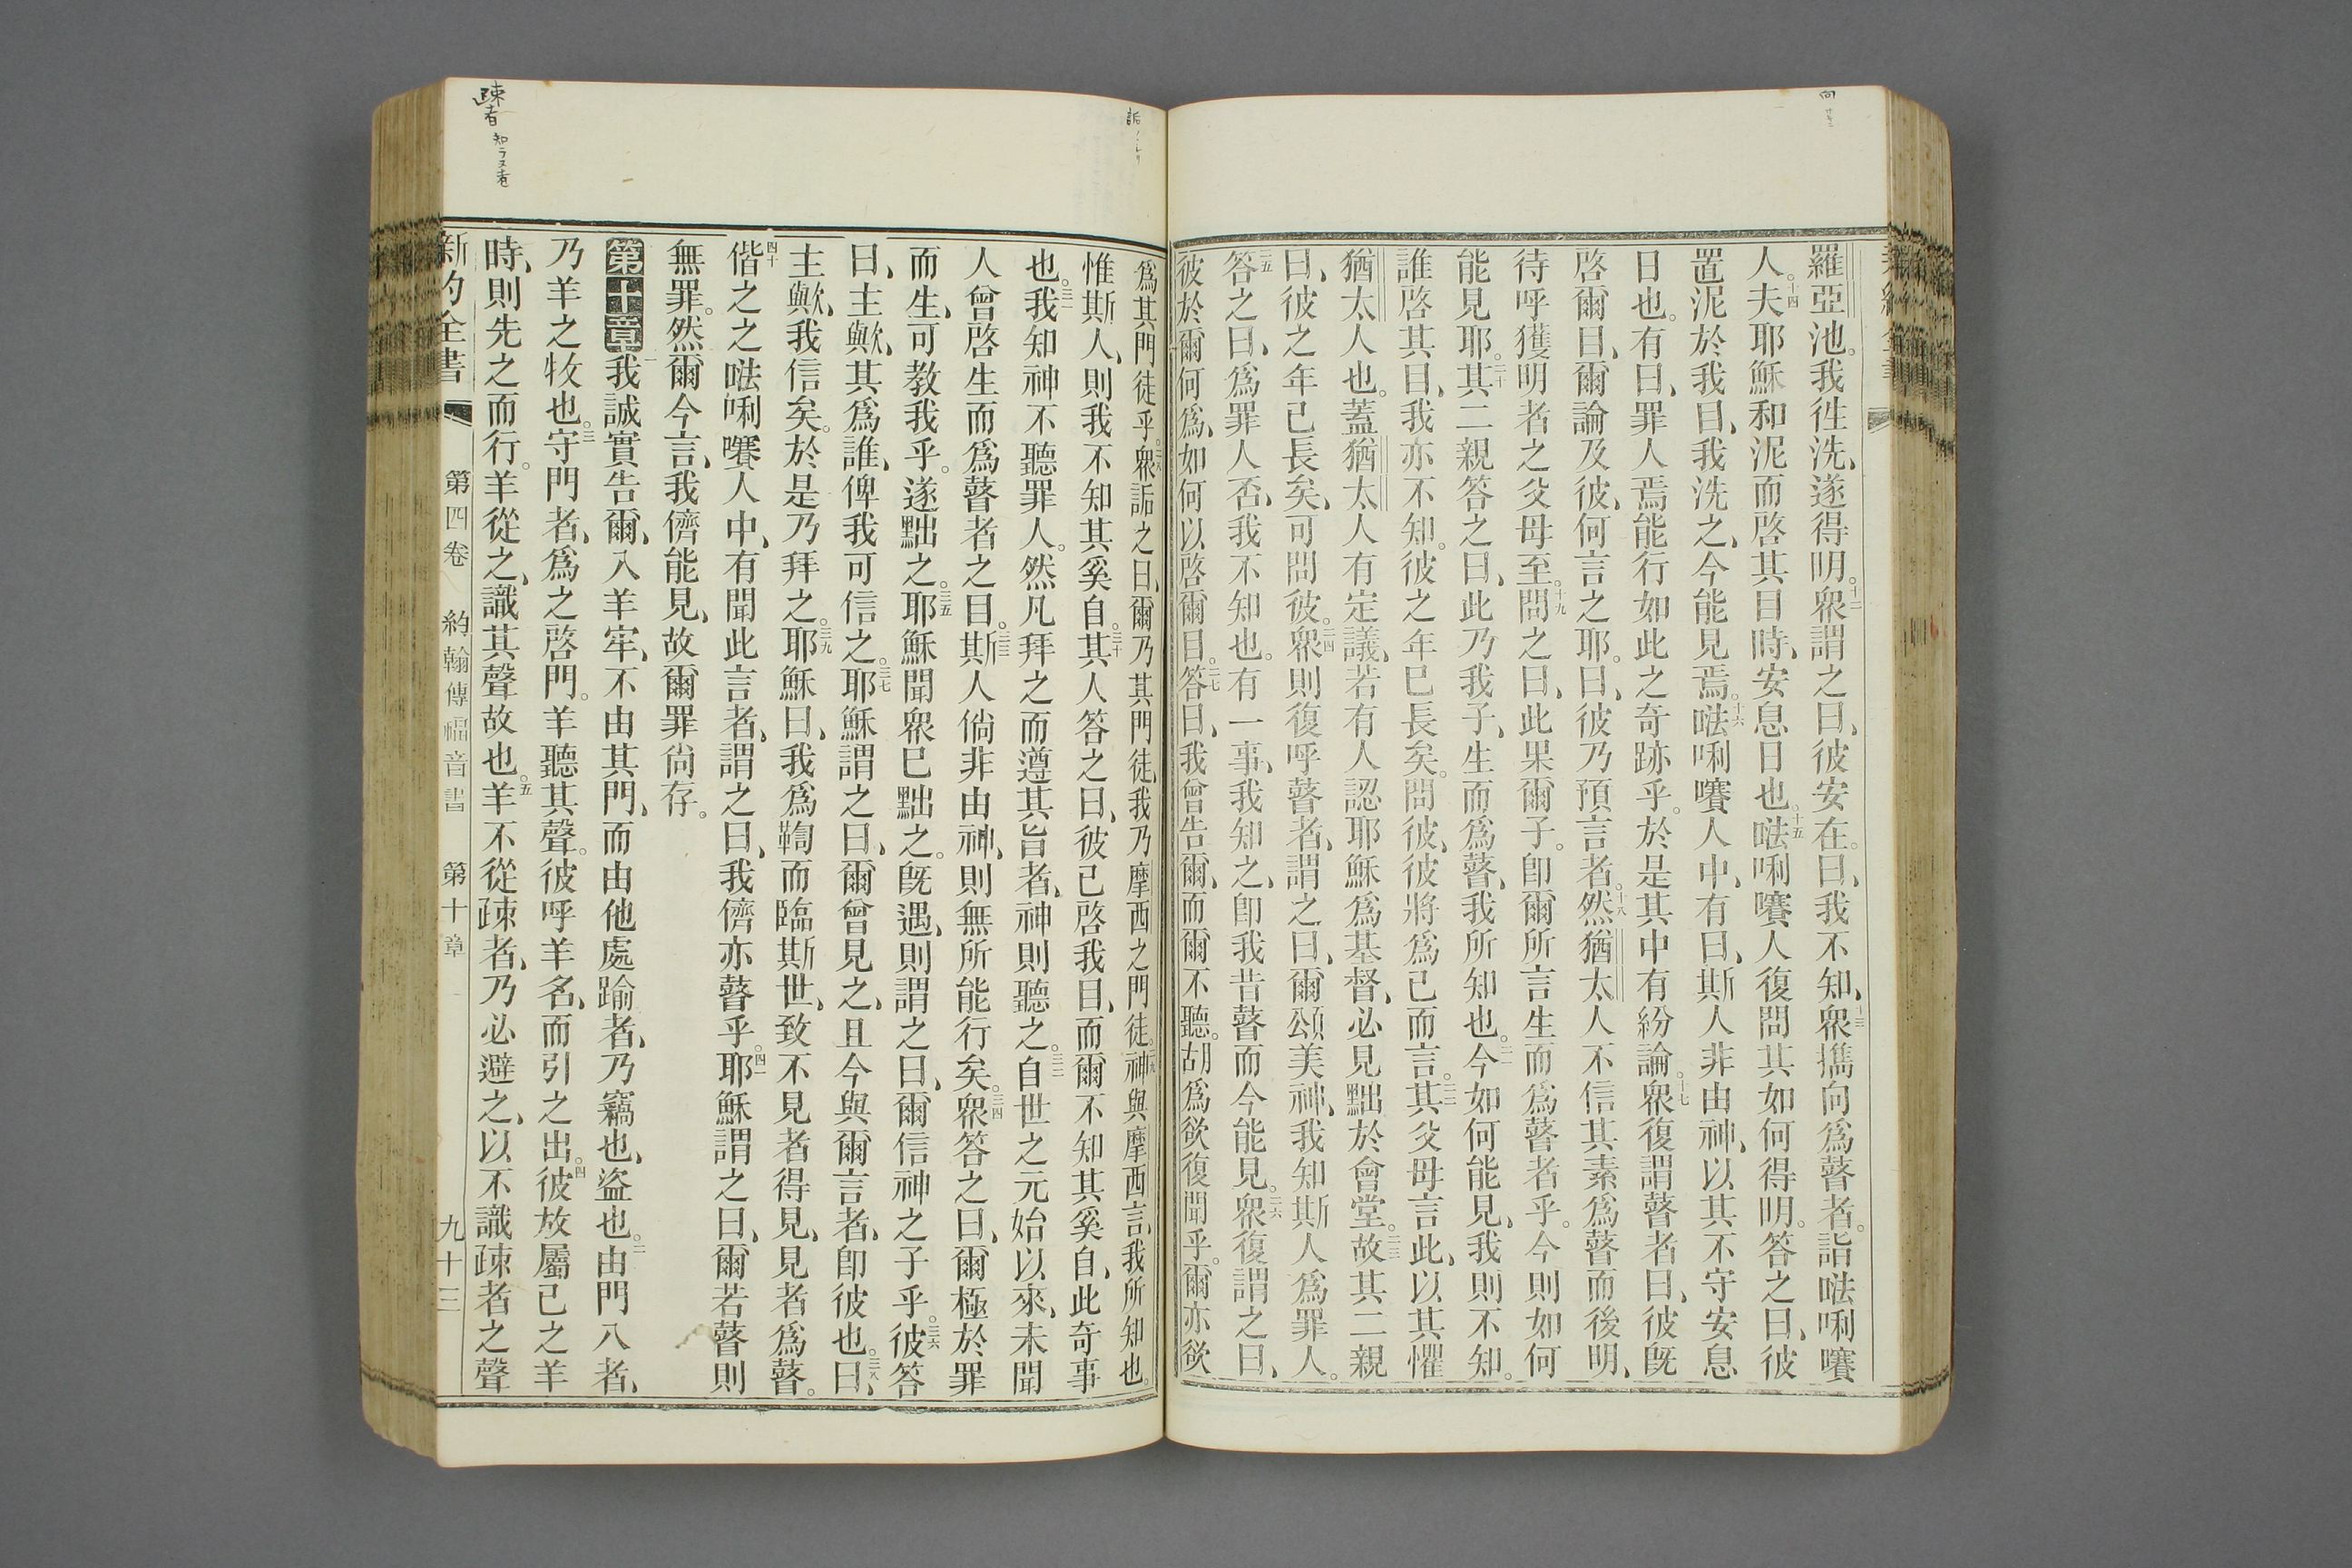 向
羅亞池。我徃洗、遂得明。十二衆謂之曰、彼安在。曰、我不知、十三衆擕向爲瞽者。詣𠵽唎㘔
人。十四夫耶穌和泥而啓其目時、安息日也。十五𠵽唎㘔人復問其如何得明。答之曰、彼
置泥於我目、我洗之、今能見焉。十六𠵽唎㘔人中、有曰、斯人非由神、以其不守安息
日也。有曰、罪人焉能行如此之奇跡乎。於是其中有紛論。十七衆復謂瞽者曰、彼旣
啓爾目、爾論及彼、何言之耶。曰、彼乃預言者。十八然猶太人不信其素爲瞽而後明、
待呼獲明者之父母至。十九問之曰、此果爾子。卽爾所言生而爲瞽者乎。今則如何
能見耶。二十其二親答之曰、此乃我子、生而爲瞽、我所知也。二一今如何能見、我則不知。
誰啓其目、我亦不知。彼之年已長矣。問彼、彼將爲己而言。二二其父母言此、以其懼
猶太人也。蓋猶太人有定議、若有人認耶穌爲基督、必見黜於會堂。二三故其二親
曰、彼之年已長矣、可問彼。二四衆則復呼瞽者、謂之曰、爾頌美神、我知斯人爲罪人。
二五答之曰、爲罪人否、我不知也。有一事、我知之、卽我昔瞽而今能見。二六衆復謂之曰、
彼於爾何爲、如何以啓爾目。二七答曰、我曾告爾、而爾不聽。胡爲欲復聞乎。爾亦欲
詬
爲其門徒乎。二八衆詬之曰、爾乃其門徒、我乃摩西之門徒。二九神與摩西言、我所知也。
惟斯人、則我不知其奚自。三十其人答之曰、彼已啓我目、而爾不知其奚自、此奇事
也。三一我知神不聽罪人。然凡拜之而遵其旨者、神則聽之。三二自世之元始以來、未聞
人曾啓生而爲瞽者之目。三三斯人倘非由神、則無所能行矣。三四衆答之曰、爾極於罪
而生、可教我乎。遂黜之。三五耶穌聞衆已黜之。旣遇、則謂之曰、爾信神之子乎。三六彼答
曰、主歟、其爲誰、俾我可信之。三七耶穌謂之曰、爾曾見之、且今與爾言者、卽彼也。三八曰、
主歟、我信矣。於是乃拜之。三九耶穌曰、我爲鞫而臨斯世、致不見者得見、見者爲瞽。
四十偕之之𠵽唎㘔人中、有聞此言者、謂之曰、我儕亦瞽乎。四一耶穌謂之曰、爾若瞽則
無罪。然爾今言、我儕能見、故爾罪尙存。
第十章一我誠實告爾、入羊牢、不由其門、而由他處踰者、乃竊也、盜也。二由門入者、
乃羊之牧也。三守門者、爲之啓門。羊聽其聲。彼呼羊名、而引之出。四彼放屬己之羊
時、則先之而行。羊從之、識其聲故也。五羊不從踈者、乃必避之、以不識踈者之聲
踈者 知ラヌ者
新約全書 第四卷 約翰傳福音書 第十章 九十三